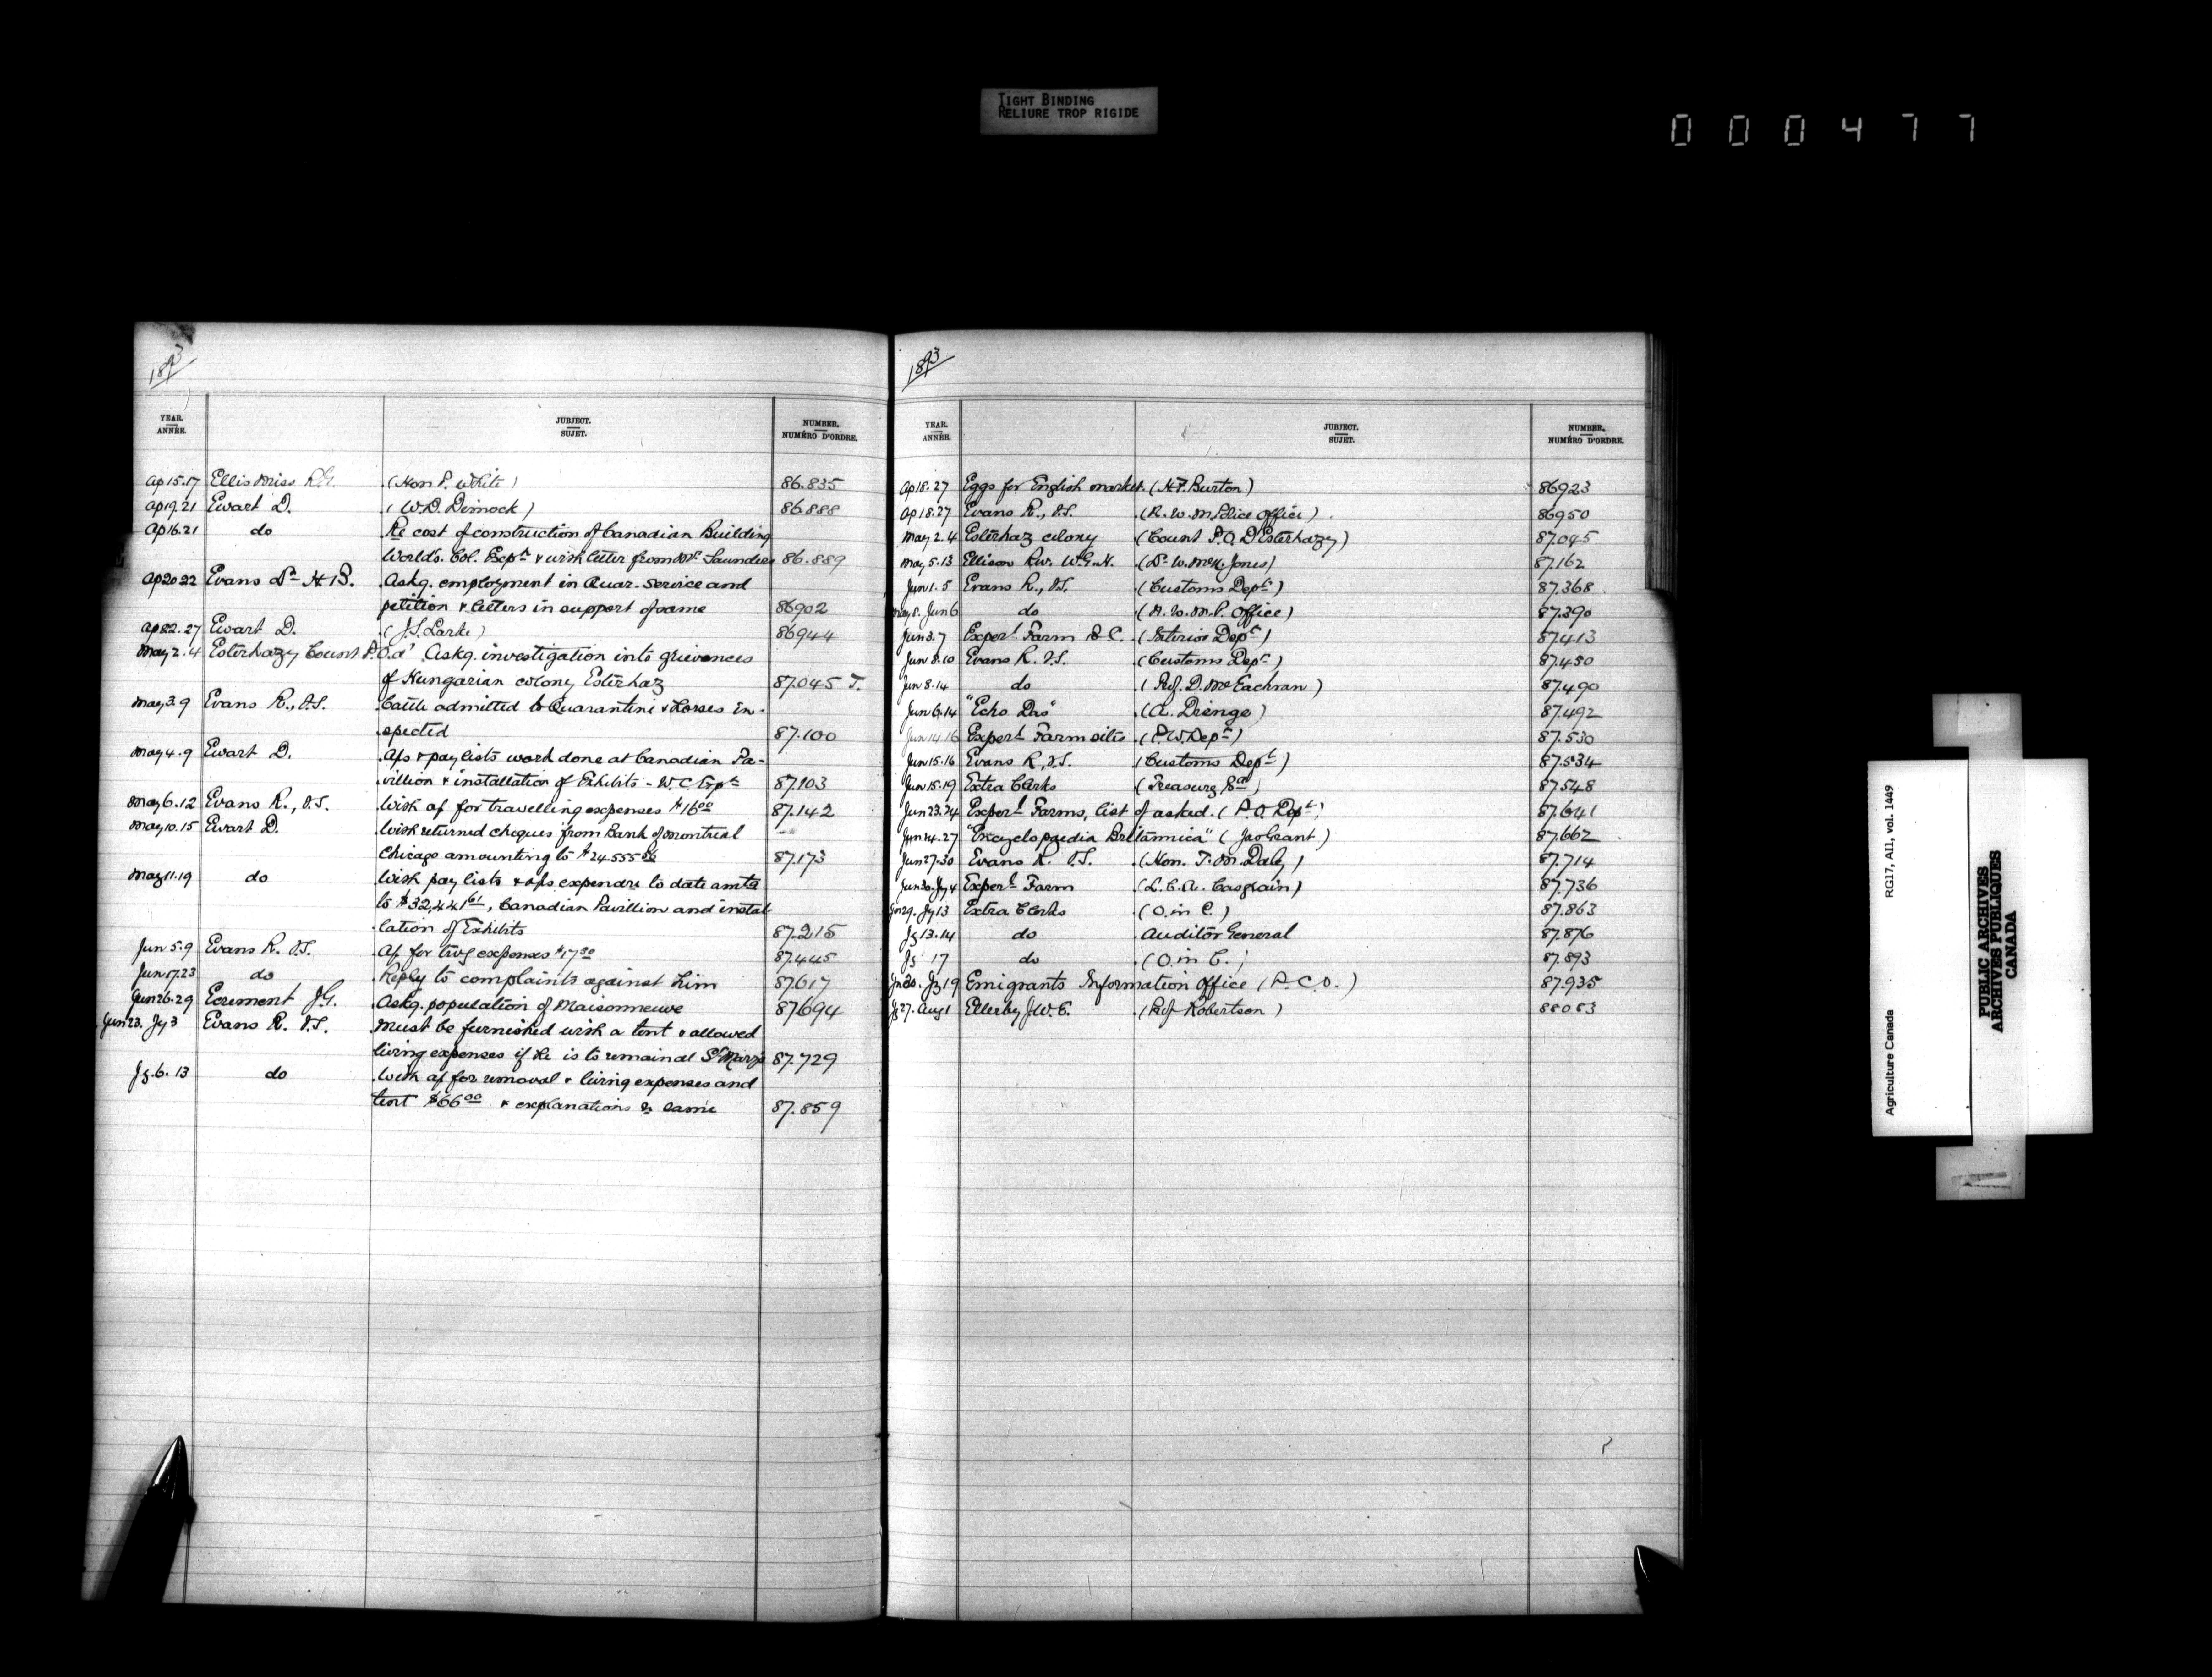 TIGHT BINDING
RELIURE TROP RIGIDE
000477
1893
YEAR. ANNÉE. JUBJECT. SUJET. NUMBER. NUMÉRO D'ORDRE.
Ap 15.17 Ellis Miss R.G. (Hon P. White) 86.835
Ap 19.21 Ewart D. (W.D. Dimock) 86.888
Ap 16.21 do Re cost of construction of Canadian Building
World's Col. Expn & with letter from Mr Saunders 86.889
Ap 20 22 Evans Dr H B. Askg. employment in Quar. Service and
petition & letters in support of same 86902
Ap 22.27 Ewart D. (J.S. Larke) 86944
May 2.4 Esterhazy Count P.O.d' Askg. investigation into grievances
of Hungarian colony Esterhaz 87.045 T.
May 3.9 Evans R., V.S. Cattle admitted to Quarantine & Horses in-
spected 87.100
May 4.9 Ewart D. A/cs & pay lists work done at Canadian Pa-
villion & installation of Exhibits - W.C. Expn 87.103
May 6.12 Evans R., V.S. With a/c for travelling expenses $16.00 87.142
May 10.15 Ewart D. With returned cheques from Bank of Montreal
Chicago amounting to $24.555 87.173
May 11.19 do With pay lists & a/cs expendre to date amtg
to $32,441.61, Canadian Pavillion and instal-
lation of Exhibits 87.215
Jun 5.9 Evans R. V.S. A/c for trvg expenses $17.50 87.445
Jun 17.23 do Reply to complaints against him 87617
Jun 26.29 Ecrement J.G. Askg. population of Maisonneuve 87694
Jun 23. Jy 3 Evans R. V.S. Must be furnished with a tent & allowed
living expenses if he is to remain at St Marys 87.729
Jy. 6. 13 do With a/c for removal & living expenses and
tent $66.00 & explanations re same 87.859
1893
YEAR. ANNÉE. JUBJECT. SUJET. NUMBER. NUMÉRO D'ORDRE.
Ap 18.27 Eggs for English market. (H.F. Burton) 86923
Ap 18.27 Evans R., V.S. (N.W.M. Police Office) 86950
May 2.4 Esterhaz colony (Count P.O. D'Esterhazy) 87.045
May 5.13 Ellison Rev. W.G.H. (Dr W. McK. Jones) 87.162
Jun 1.5 Evans R., V.S. (Customs Dept) 87.368
May 8. Jun 6 do (N.W.M.P. Office) 87.390
Jun 3.7 Experl Farm B.C. (Interior Dept) 87.413
Jun 8.10 Evans R. V.S. (Customs Dept) 87.450
Jun 8.14 do (Prof. D. McEachran) 87.490
Jun 6.14 "Echo Das" (A. Drenge) 87.492
Jun 14.16 Experl Farm sites (P.W. Dept) 87.530
Jun 15.16 Evans R, V.S. (Customs Dept) 87.534
Jun 15.19 Extra Clerks (Treasury Bd) 87.548
Jun 23.24 Experl Farms, list of asked. (P.O. Dept) 87.641
Jun 14.27 "Encyclopaedia Britannica" (Jas Grant) 87.662
Jun 27.30 Evans R. V.S. (Hon. T.M. Daly) 87.714
Jun 30. Jy 4 Experl Farm (L.C.A. Casgrain) 87.736
Jun 29. Jy 13 Extra Clerks (O. in C.) 87.863
Jy 13.14 do Auditor General 87.876
Jy 17 do (O. in C.) 87.893
Jy 19 Emigrants Information Office (P.C.O.) 87.935
Jy 27. Aug 1 Ellerby J.W.E. (Prof Robertson) 88083
Agriculture Canada RG17, AI1, vol. 1449
PUBLIC ARCHIVES
ARCHIVES PUBLIQUES
CANADA